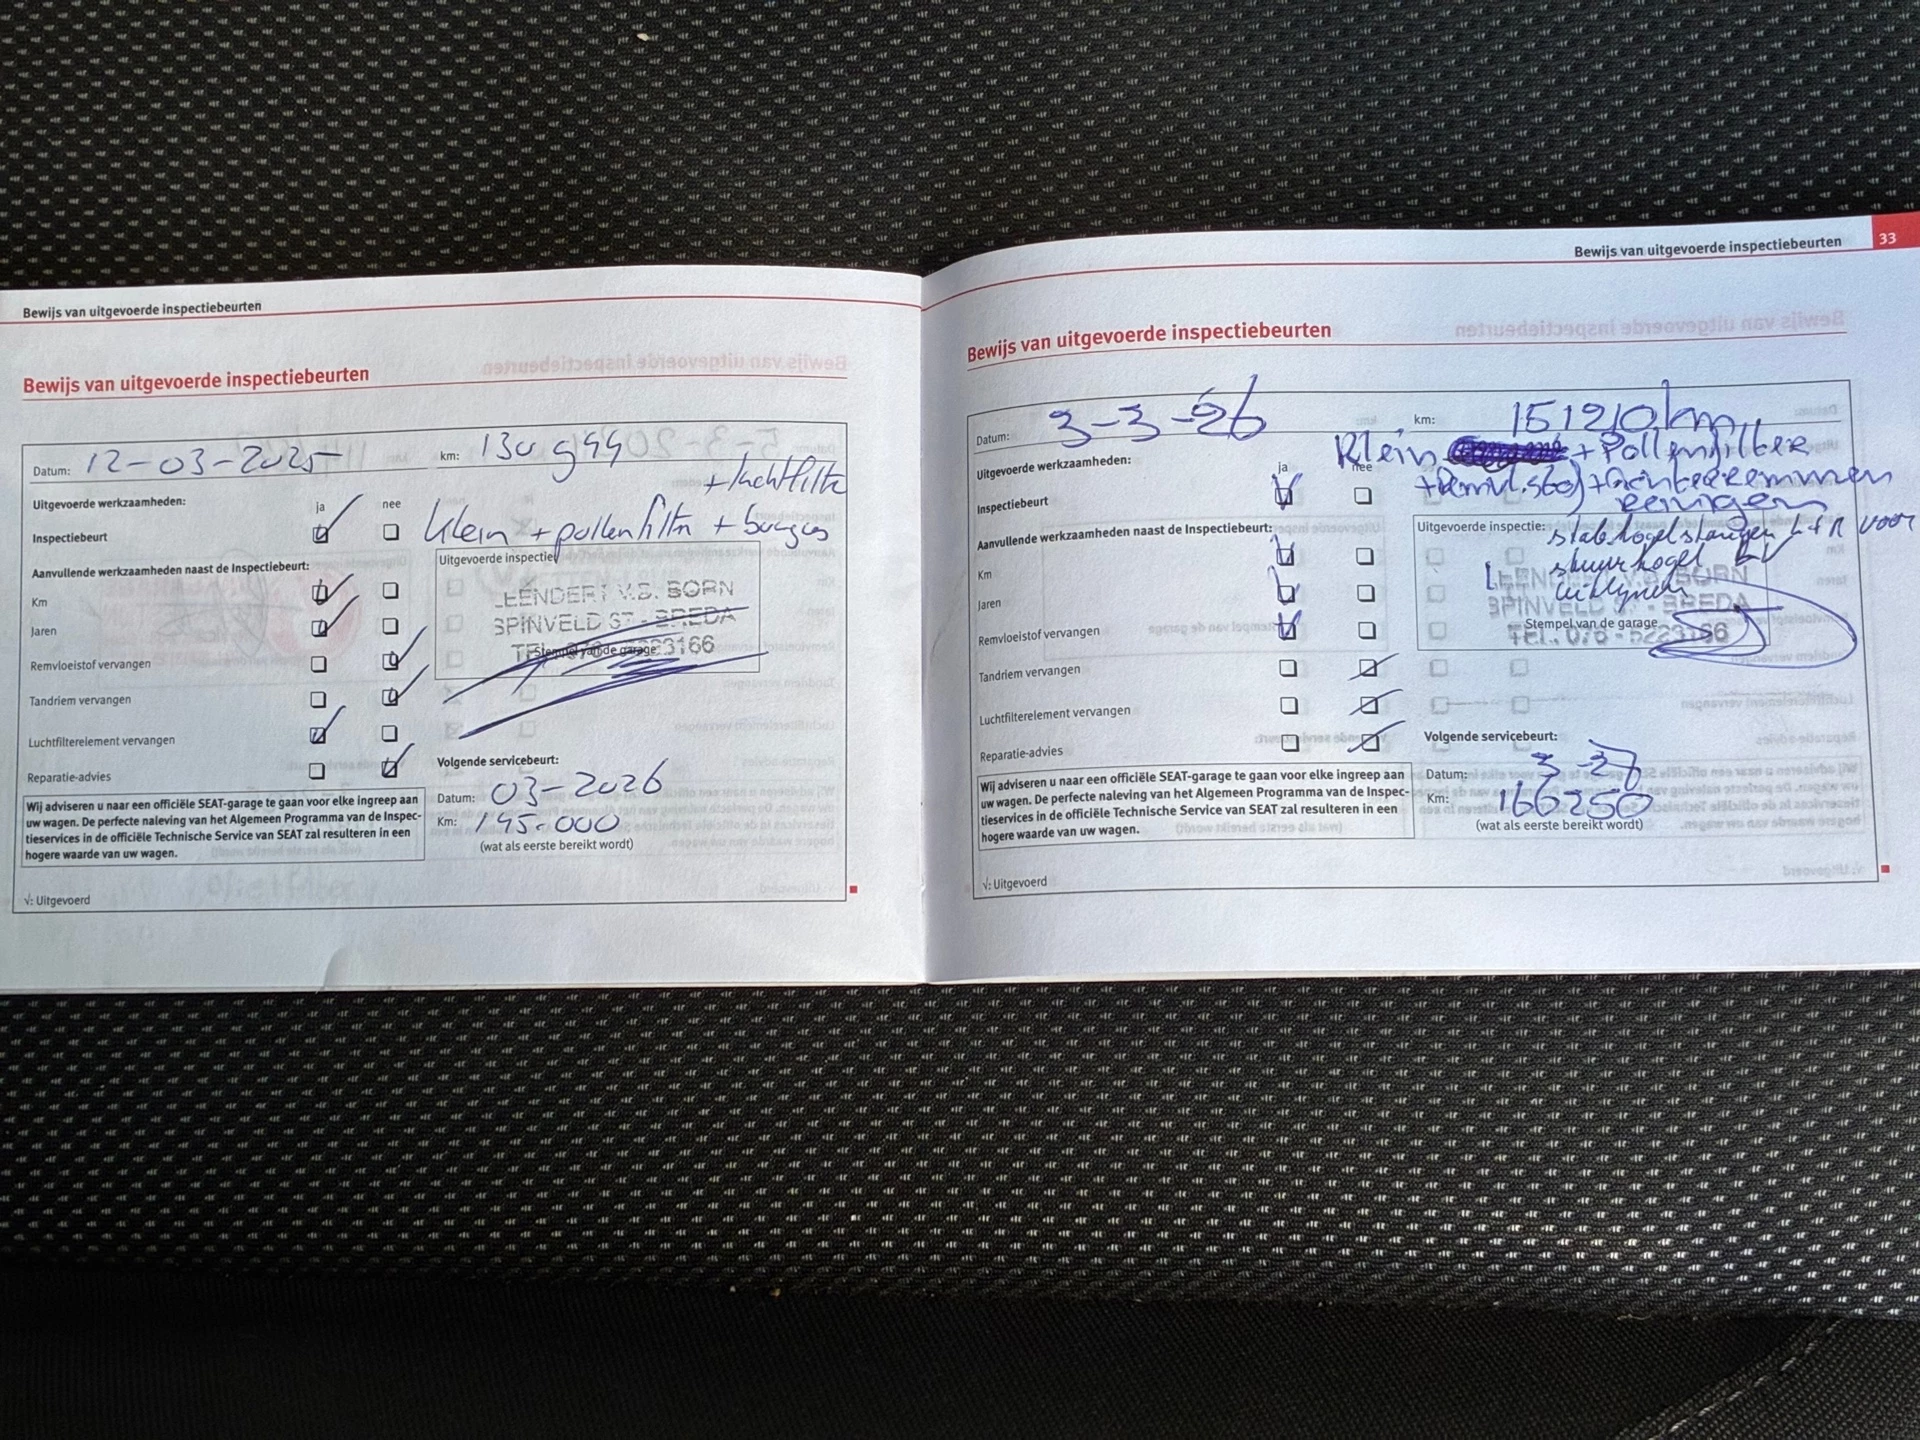 Bewijs van uitgevoerde inspectiebeurten
Bewijs van uitgevoerde inspectiebeurten
Datum: 12-03-2025 km: 130 994
+ luchtfilter
Uitgevoerde werkzaamheden: ja nee
Inspectiebeurt klein + pollenfilter + bougies
Aanvullende werkzaamheden naast de Inspectiebeurt:
Uitgevoerde inspectie
Km
Jaren
Remvloeistof vervangen
Tandriem vervangen
Luchtfilterelement vervangen
Reparatie-advies
LEENDERT V.D. BORN
SPINVELD 57 - BREDA
Stempel van de garage 3166
Volgende servicebeurt:
Datum: 03-2026
Km: 145.000
(wat als eerste bereikt wordt)
Wij adviseren u naar een officiële SEAT-garage te gaan voor elke ingreep aan
uw wagen. De perfecte naleving van het Algemeen Programma van de Inspec-
tieservices in de officiële Technische Service van SEAT zal resulteren in een
hogere waarde van uw wagen.
√: Uitgevoerd
Bewijs van uitgevoerde inspectiebeurten 33
Bewijs van uitgevoerde inspectiebeurten
Datum: 3-3-26 km: 151210 km
Uitgevoerde werkzaamheden: ja nee
Klein + Pollenfilter
Inspectiebeurt
+ Remvl.stof + Achterremmen
reinigen
Aanvullende werkzaamheden naast de Inspectiebeurt:
Uitgevoerde inspectie: stabkogelstangen L + R voor
stuurkogel L
uitlijnen
Km
Jaren
Remvloeistof vervangen
Tandriem vervangen
Luchtfilterelement vervangen
Reparatie-advies
LEENDERT V.D. BORN
SPINVELD BREDA
Stempel van de garage
TEL. 076 - 5223166
Volgende servicebeurt:
Datum: 3-27
Km: 166250
(wat als eerste bereikt wordt)
Wij adviseren u naar een officiële SEAT-garage te gaan voor elke ingreep aan
uw wagen. De perfecte naleving van het Algemeen Programma van de Inspec-
tieservices in de officiële Technische Service van SEAT zal resulteren in een
hogere waarde van uw wagen.
√: Uitgevoerd